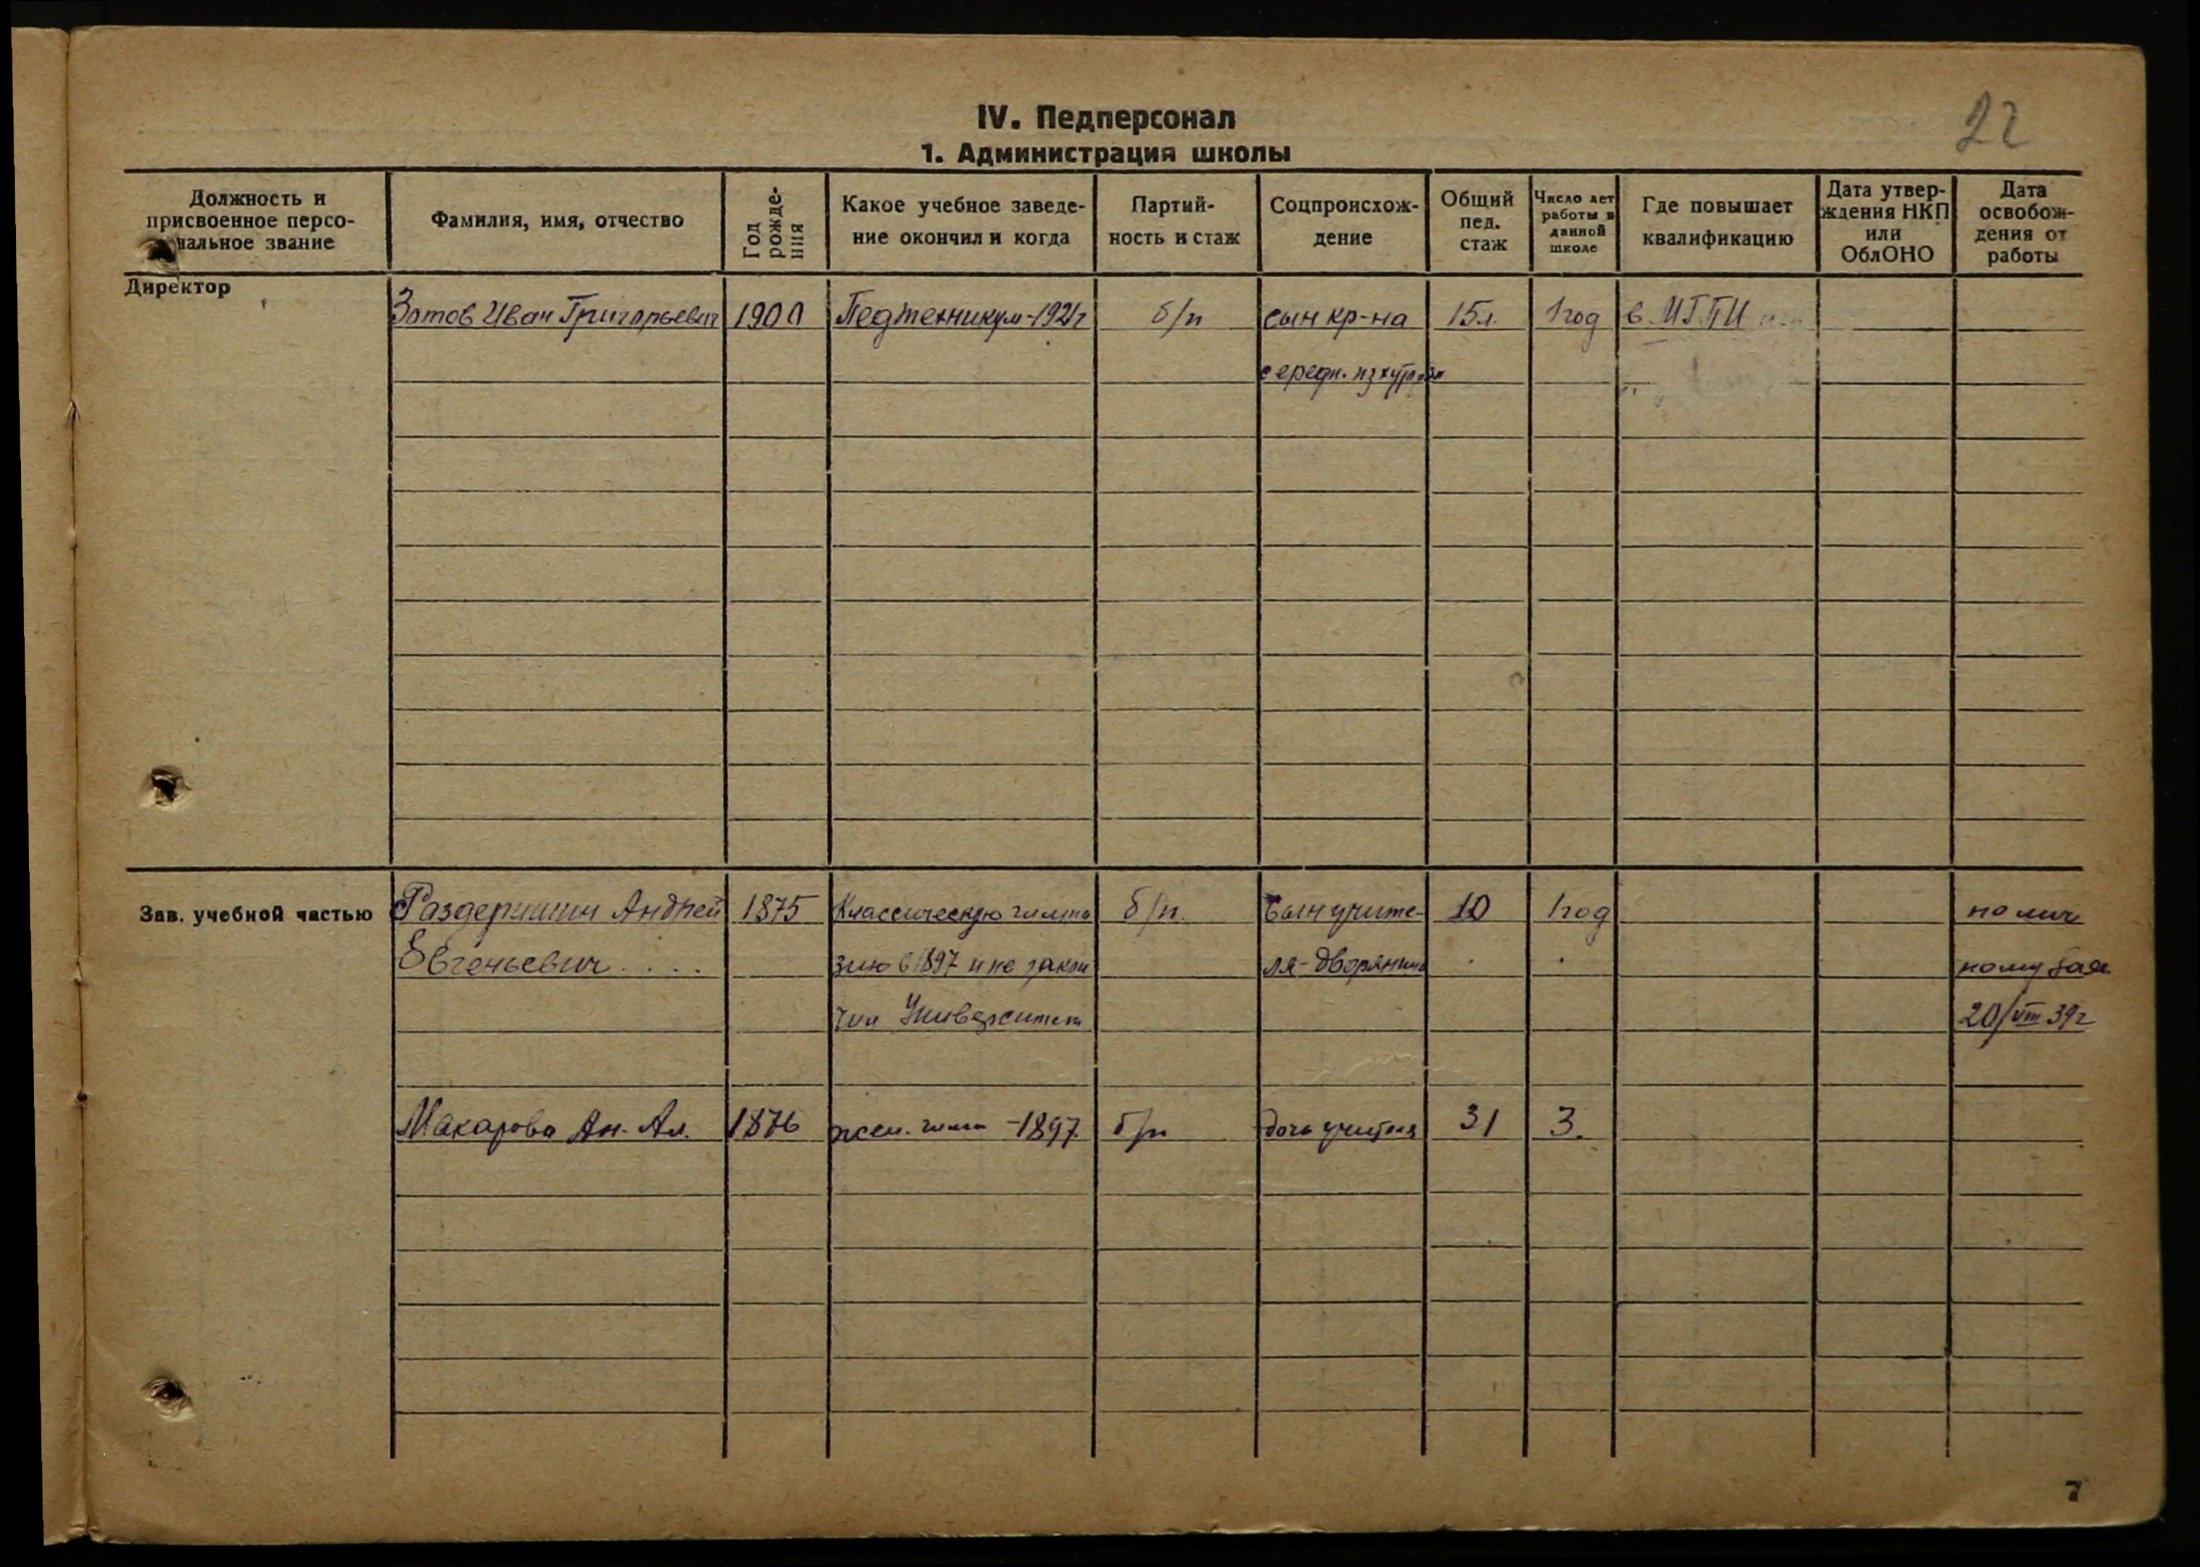 22
IV. Педперсонал
1. Администрация школы
Должность и присвоенное персональное звание
Фамилия, имя, отчество
Год рождения
Какое учебное заведение окончил и когда
Партийность и стаж
Соцпроисхождение
Общий пед. стаж
Число лет работы в данной школе
Где повышает квалификацию
Дата утверждения НКП или ОблОНО
Дата освобождения от работы
Директор
Зотов Иван Григорьевич 1900 Педтехникум-1921г б/п сын кр-на 15л. 1год в МГПИ
середн.
Зав. учебной частью Раздеришин Андрей 1875 Классическую гимна б/п. Сын учите- 10 1год по лич
Евгеньевич зию в 1897 и не закон ля-дворянина ному
чил Университет 20/VIII 39г
Макарова Ан. Ал. 1876 жен. гимн -1897. б/п дочь учителя 31 3.
7